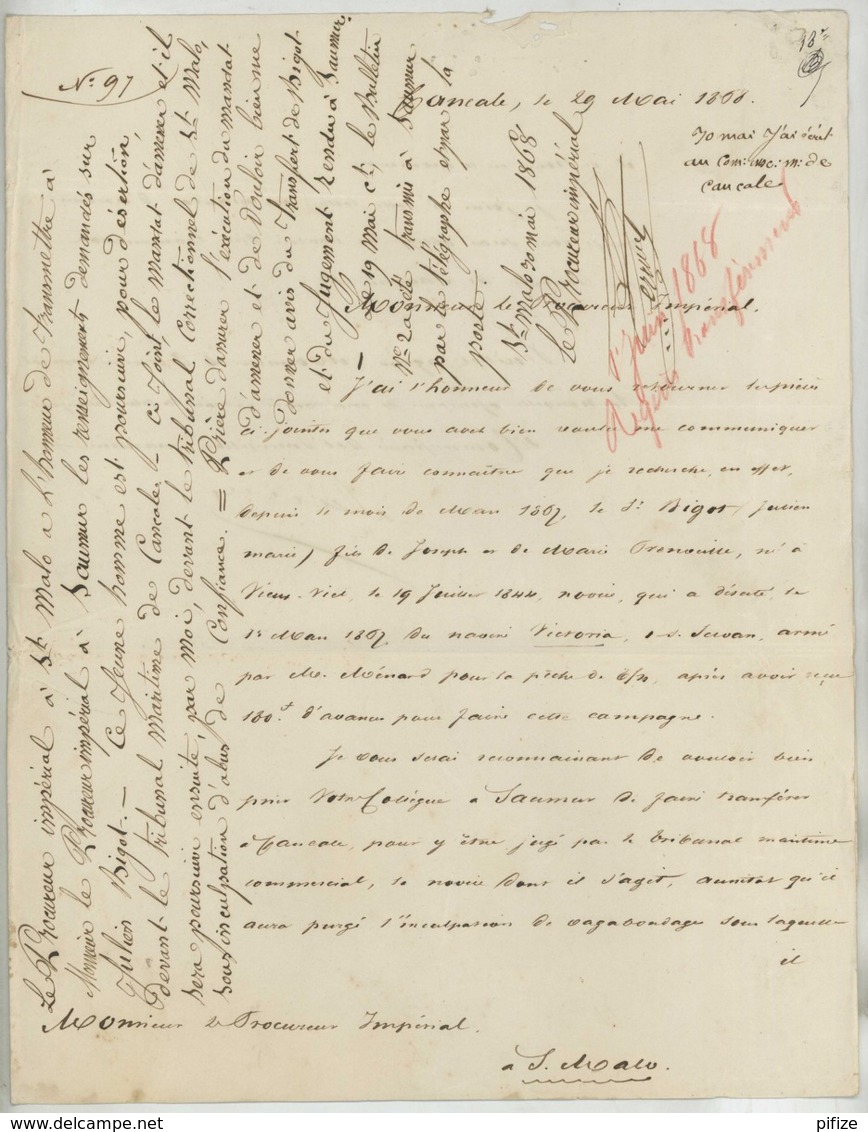 N° 97
18
Cancale, le 29 Mai 1868.
30 mai J'ai écrit
au Com: de
Cancale
Monsieur le Procureur Impérial.
J'ai l'honneur de vous retourner les pièces
ci jointes que vous avez bien voulu me communiquer
et de vous faire connaître que je recherche, en effet,
depuis le mois de Mars 1867, le Sr Bigot, Julien
marie, fils de Joseph et de Marie né à
Vieux-Viel, le 19 Juillet 1844, novice, qui a déserté, le
1er Mars 1867 du navire Victoria, de S. Servan, armé
par M. Ménard pour la pêche de après avoir reçu
180f d'avances pour faire cette campagne.
Je vous serai reconnaissant de vouloir bien
prier Votre Collègue à Saumur de faire transférer
à Cancale, pour y être jugé par le tribunal maritime
commercial, le novice dont il s'agit, aussitôt qu'il
aura purgé l'inculpation de vagabondage sous laquelle
il
Monsieur le Procureur Impérial.
à S. Malo.
Le Procureur impérial à St Malo a l'honneur de transmettre à
Monsieur le Procureur impérial à Saumur les renseignements demandés sur
Julien Bigot. — Ce jeune homme est poursuivi, pour désertion,
devant le tribunal Maritime de Cancale. — ci joint le mandat d'amener et il
sera poursuivi ensuite, par moi, devant le tribunal correctionnel de St Malo,
sous inculpation d'abus de Confiance. = Prière d'assurer l'exécution du mandat
d'amener et de vouloir bien me
donner avis du transfert de Bigot
et du jugement rendu à Saumur.
— Le 19 Mai ct, le Bulletin
n° 2 a été transmis à Saumur
par le télégraphe et par la
poste.
St Malo 30 mai 1868
Le Procureur impérial
1er Juin 1868
transfèrement